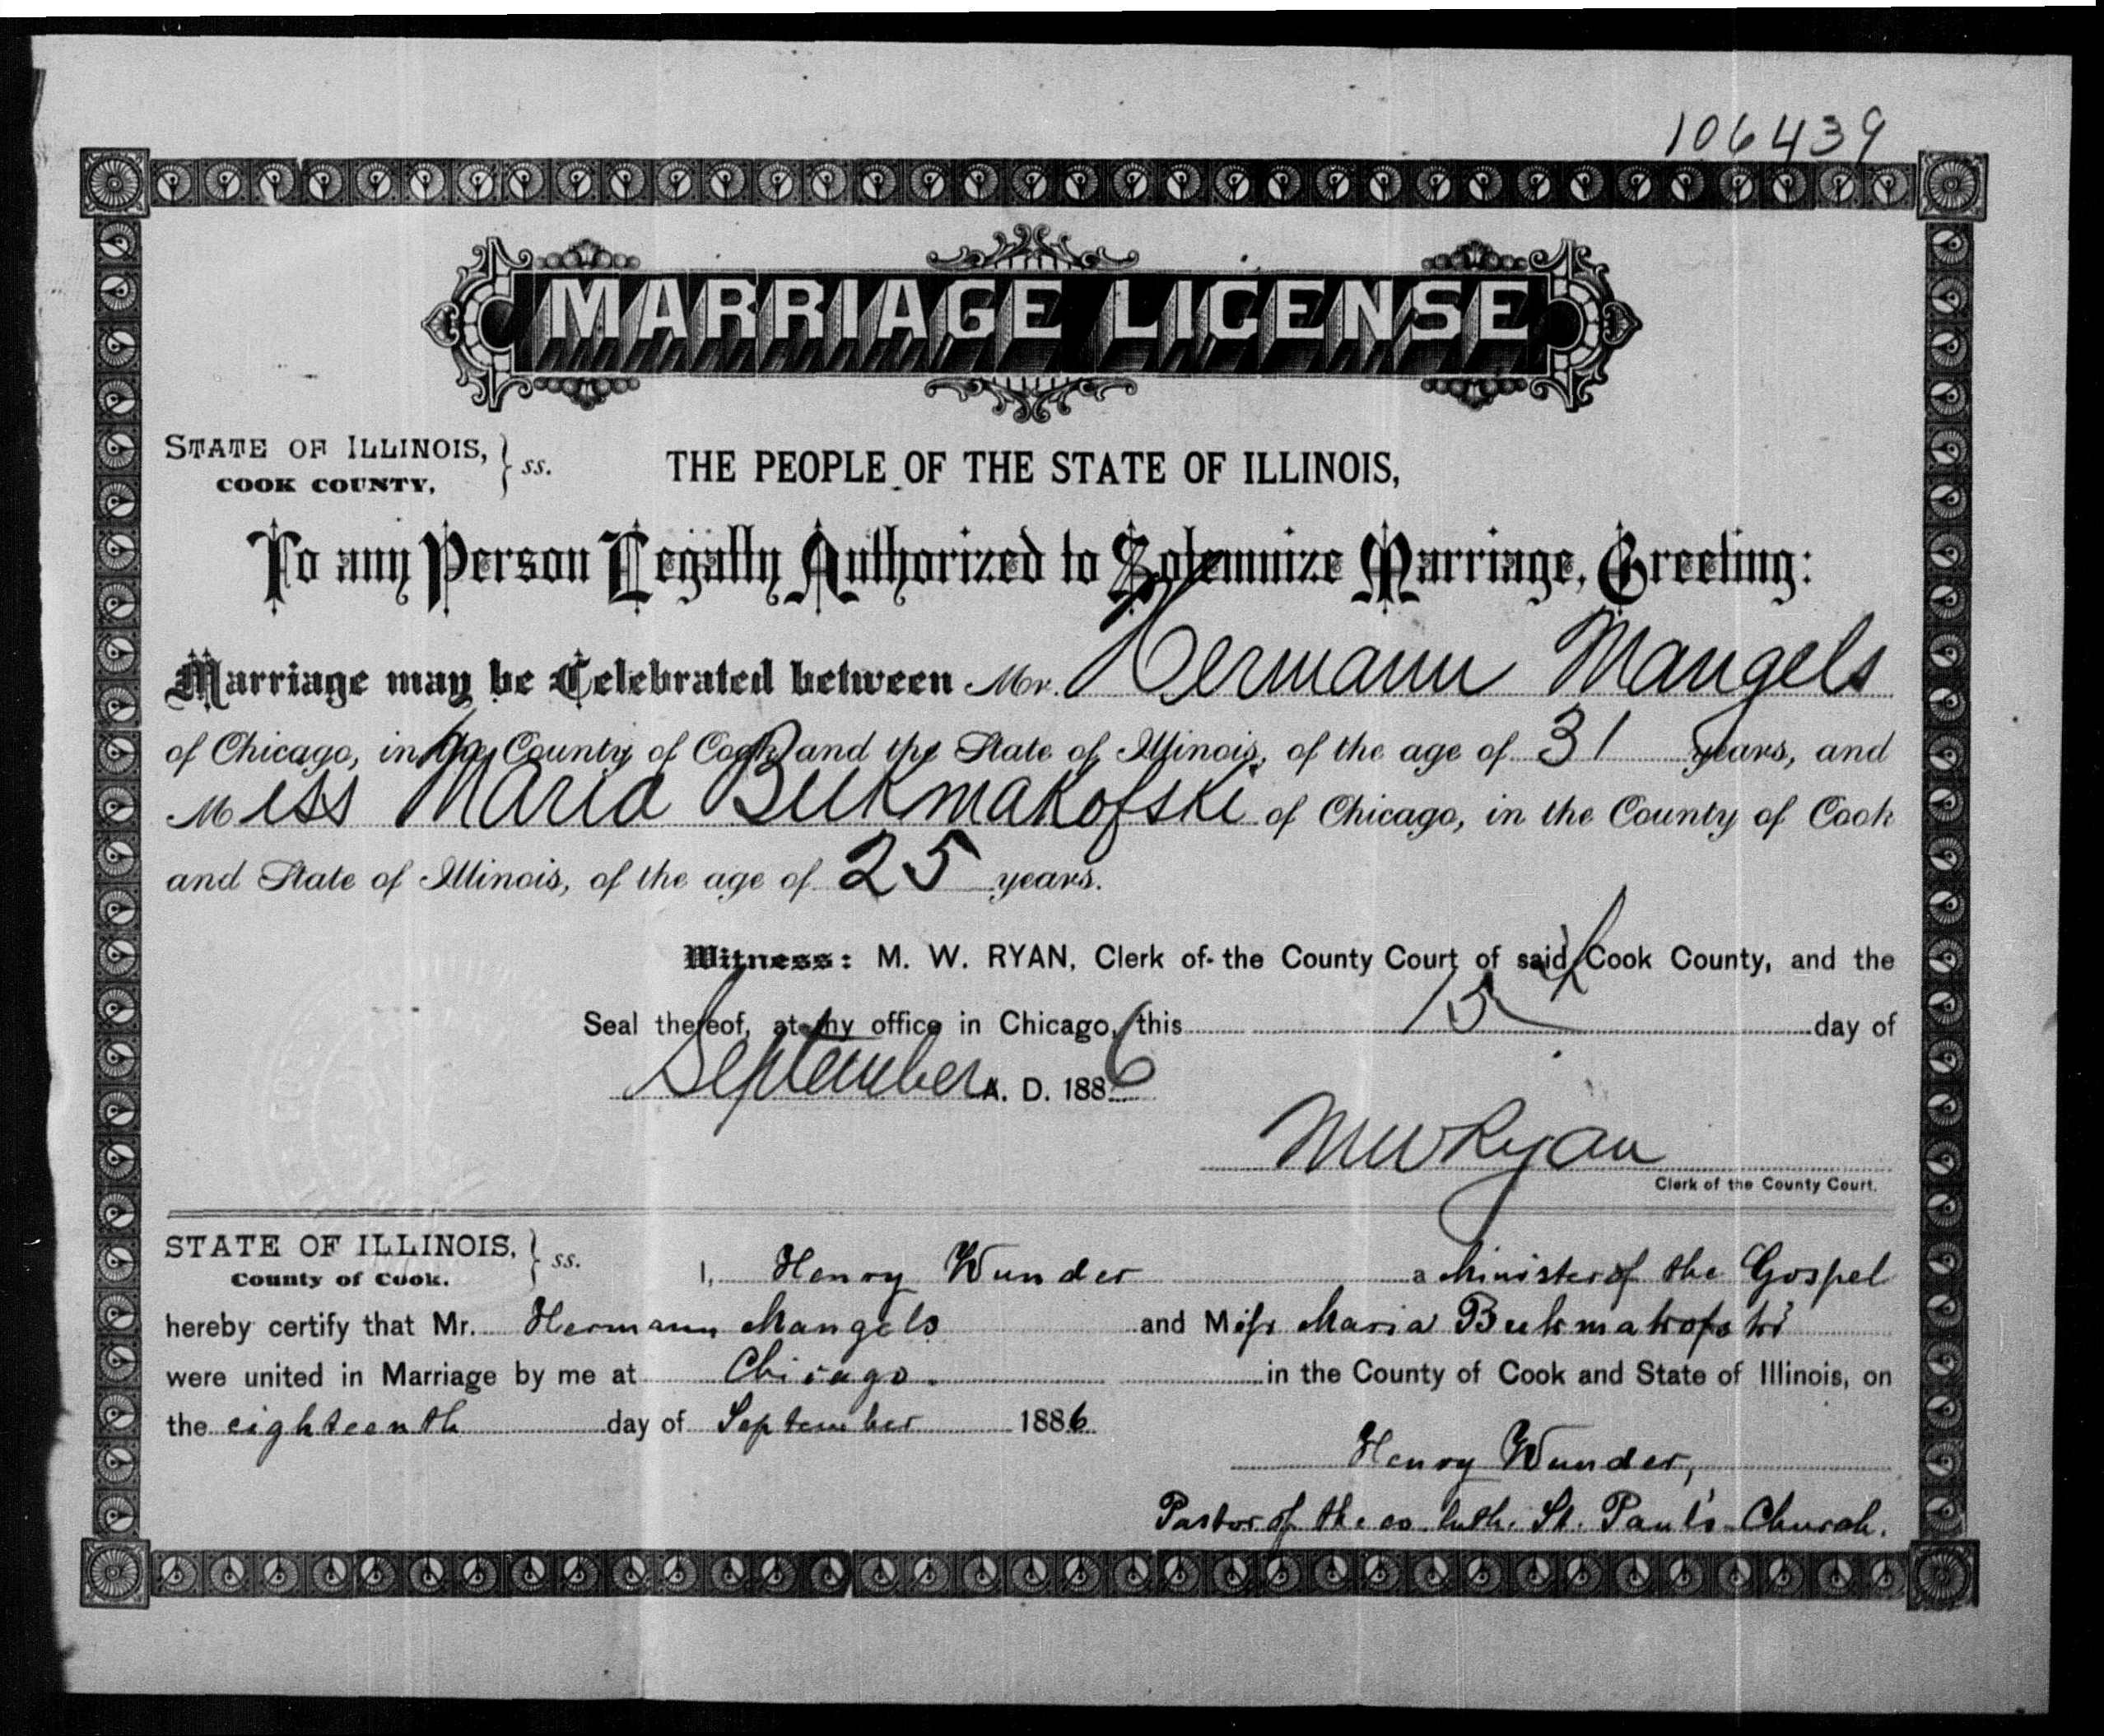 106439
MARRIAGE LICENSE
STATE OF ILLINOIS, } ss. THE PEOPLE OF THE STATE OF ILLINOIS,
COOK COUNTY,
To any Person Legally Authorized to Solemnize Marriage, Greeting:
Marriage may be Celebrated between Mr. Hermann Mangels
of Chicago, in the County of Cook and the State of Illinois, of the age of 31 years, and
Miss Maria Beekmakofski of Chicago, in the County of Cook
and State of Illinois, of the age of 25 years.
Witness: M. W. RYAN, Clerk of the County Court of said Cook County, and the
Seal thereof, at my office in Chicago, this 15th day of
September A. D. 1886
M W Ryan
Clerk of the County Court.
STATE OF ILLINOIS, } ss. I, Henry Wunder a Minister of the Gospel
County of Cook.
hereby certify that Mr. Hermann Mangels and Miss Maria Beekmakofski
were united in Marriage by me at Chicago. in the County of Cook and State of Illinois, on
the eighteenth day of September 1886
Henry Wunder,
Pastor of the ev. luth. St. Paul's Church.